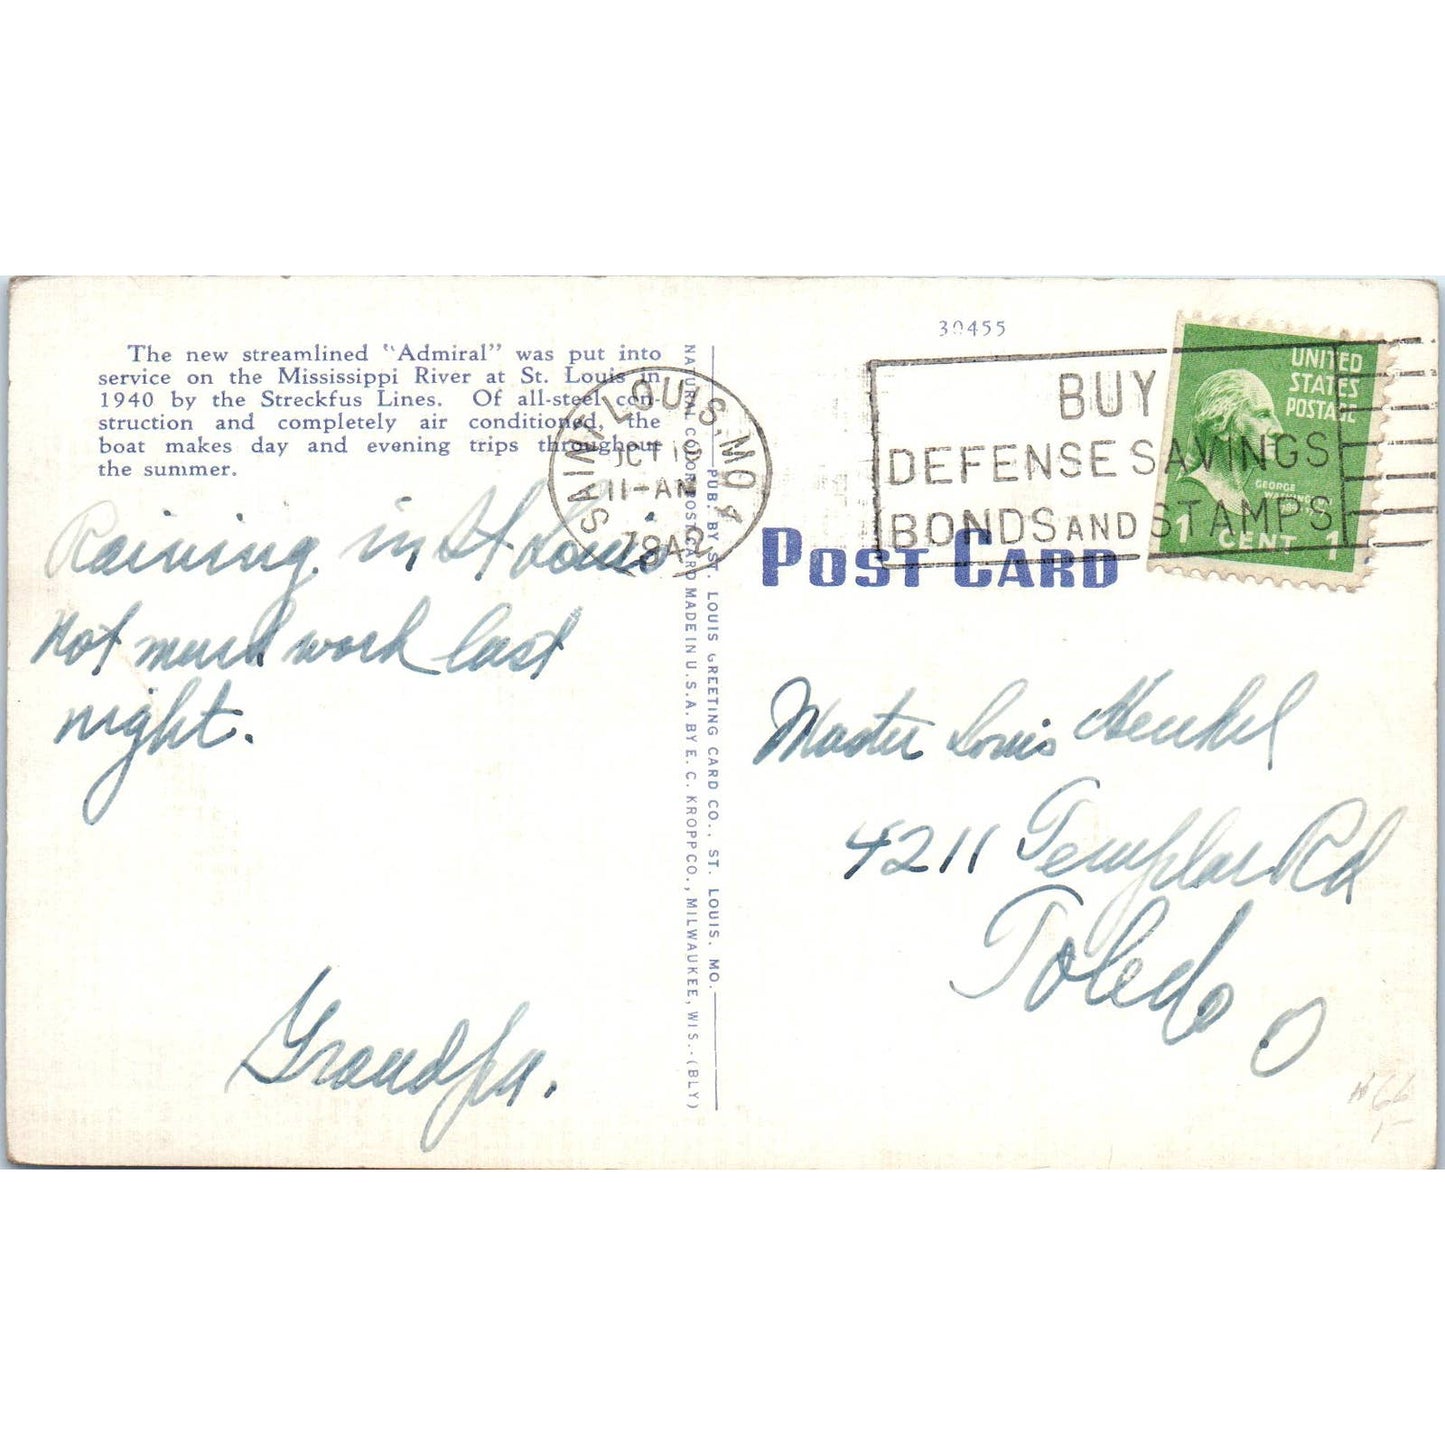 The new streamlined "Admiral" was put into
service on the Mississippi River at St. Louis in
1940 by the Streckfus Lines. Of all-steel con-
struction and completely air conditioned, the
boat makes day and evening trips throughout
the summer.
Raining in St Louis
Not much work last
night.
Grandpa.
NATURAL COLOR POST CARD MADE IN U.S.A. BY E. C. KROPP CO., MILWAUKEE, WIS. (BLY)
PUB. BY ST. LOUIS GREETING CARD CO., ST. LOUIS, MO.
SAINT LOUIS, MO. 4
11-AM
30455
BUY
DEFENSE SAVINGS
BONDS AND STAMPS
UNITED
STATES
POSTAGE
GEORGE
WASHINGTON
1 CENT 1
POST CARD
Master Louis Henkel
4211 Templar Rd
Toledo
O